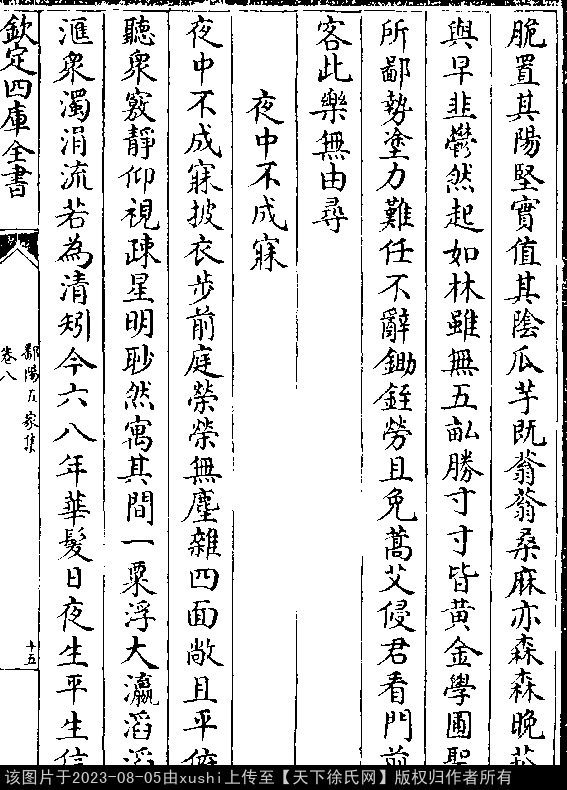 脆置其陽堅實值其陰瓜芋既蓊蓊桑麻亦森森晚菘
與早韭鬱然起如林雖無五畝勝寸寸皆黃金學圃聖
所鄙勢塗力難任不辭鋤銍勞且免蒿艾侵君看門前
客此樂無由尋
夜中不成寐
夜中不成寐披衣步前庭榮榮無塵雜四面敞且平俯
聽衆竅靜仰視疎星明眇然寓其間一粟浮大瀛滔滔
滙衆濁涓流若為清矧今六八年華髮日夜生平生信
欽定四庫全書
鄱陽五家集
卷八
十五
该图片于2023-08-05由xushi上传至【天下徐氏网】版权归作者所有